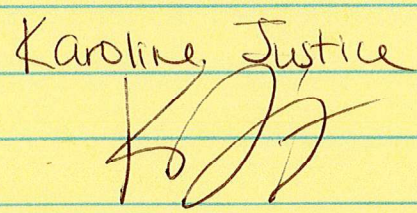 Karoline Justice